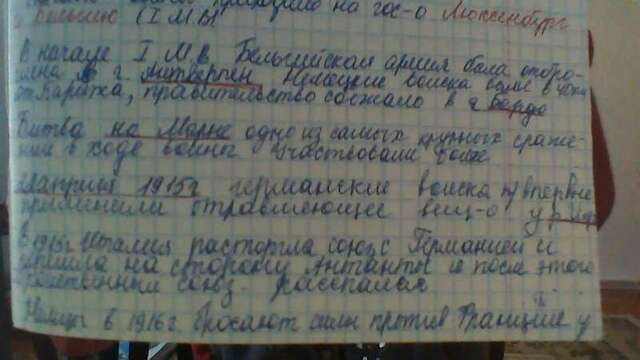 на гос-о Люксенбург
Бельгию (I М В)
В начале I М В Бельгийская армия была отбро-
шена в г. Антверпен Немецкие войска были в 40км
от Парижа, правительство сбежало в г Бордо
Битва на Марне одно из самых крупных сраже-
ний в ходе войны участвовали более
апреля 1915г германские войска впервые
применили отравляющее вещ-о у р
В 1915г Италия расторгла союз с Германией и
на сторону Антанты и после этого
союз распался
Немцы в 1916г бросают силы против Франции у